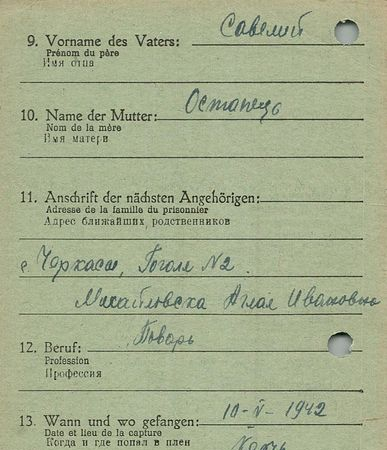 9. Vorname des Vaters: Савелий
Prénom du père
Имя отца
10. Name der Mutter: Остапець
Nom de la mère
Имя матери
11. Anschrift der nächsten Angehörigen:
Adresse de la famille du prisonnier
Адрес ближайших родственников
г. Черкассы, Гоголя №2.
Михайловска Аглая Ивановна
12. Beruf: Поварь
Profession
Профессия
13. Wann und wo gefangen: 10-V-1942
Date et lieu de la capture
Когда и где попал в плен